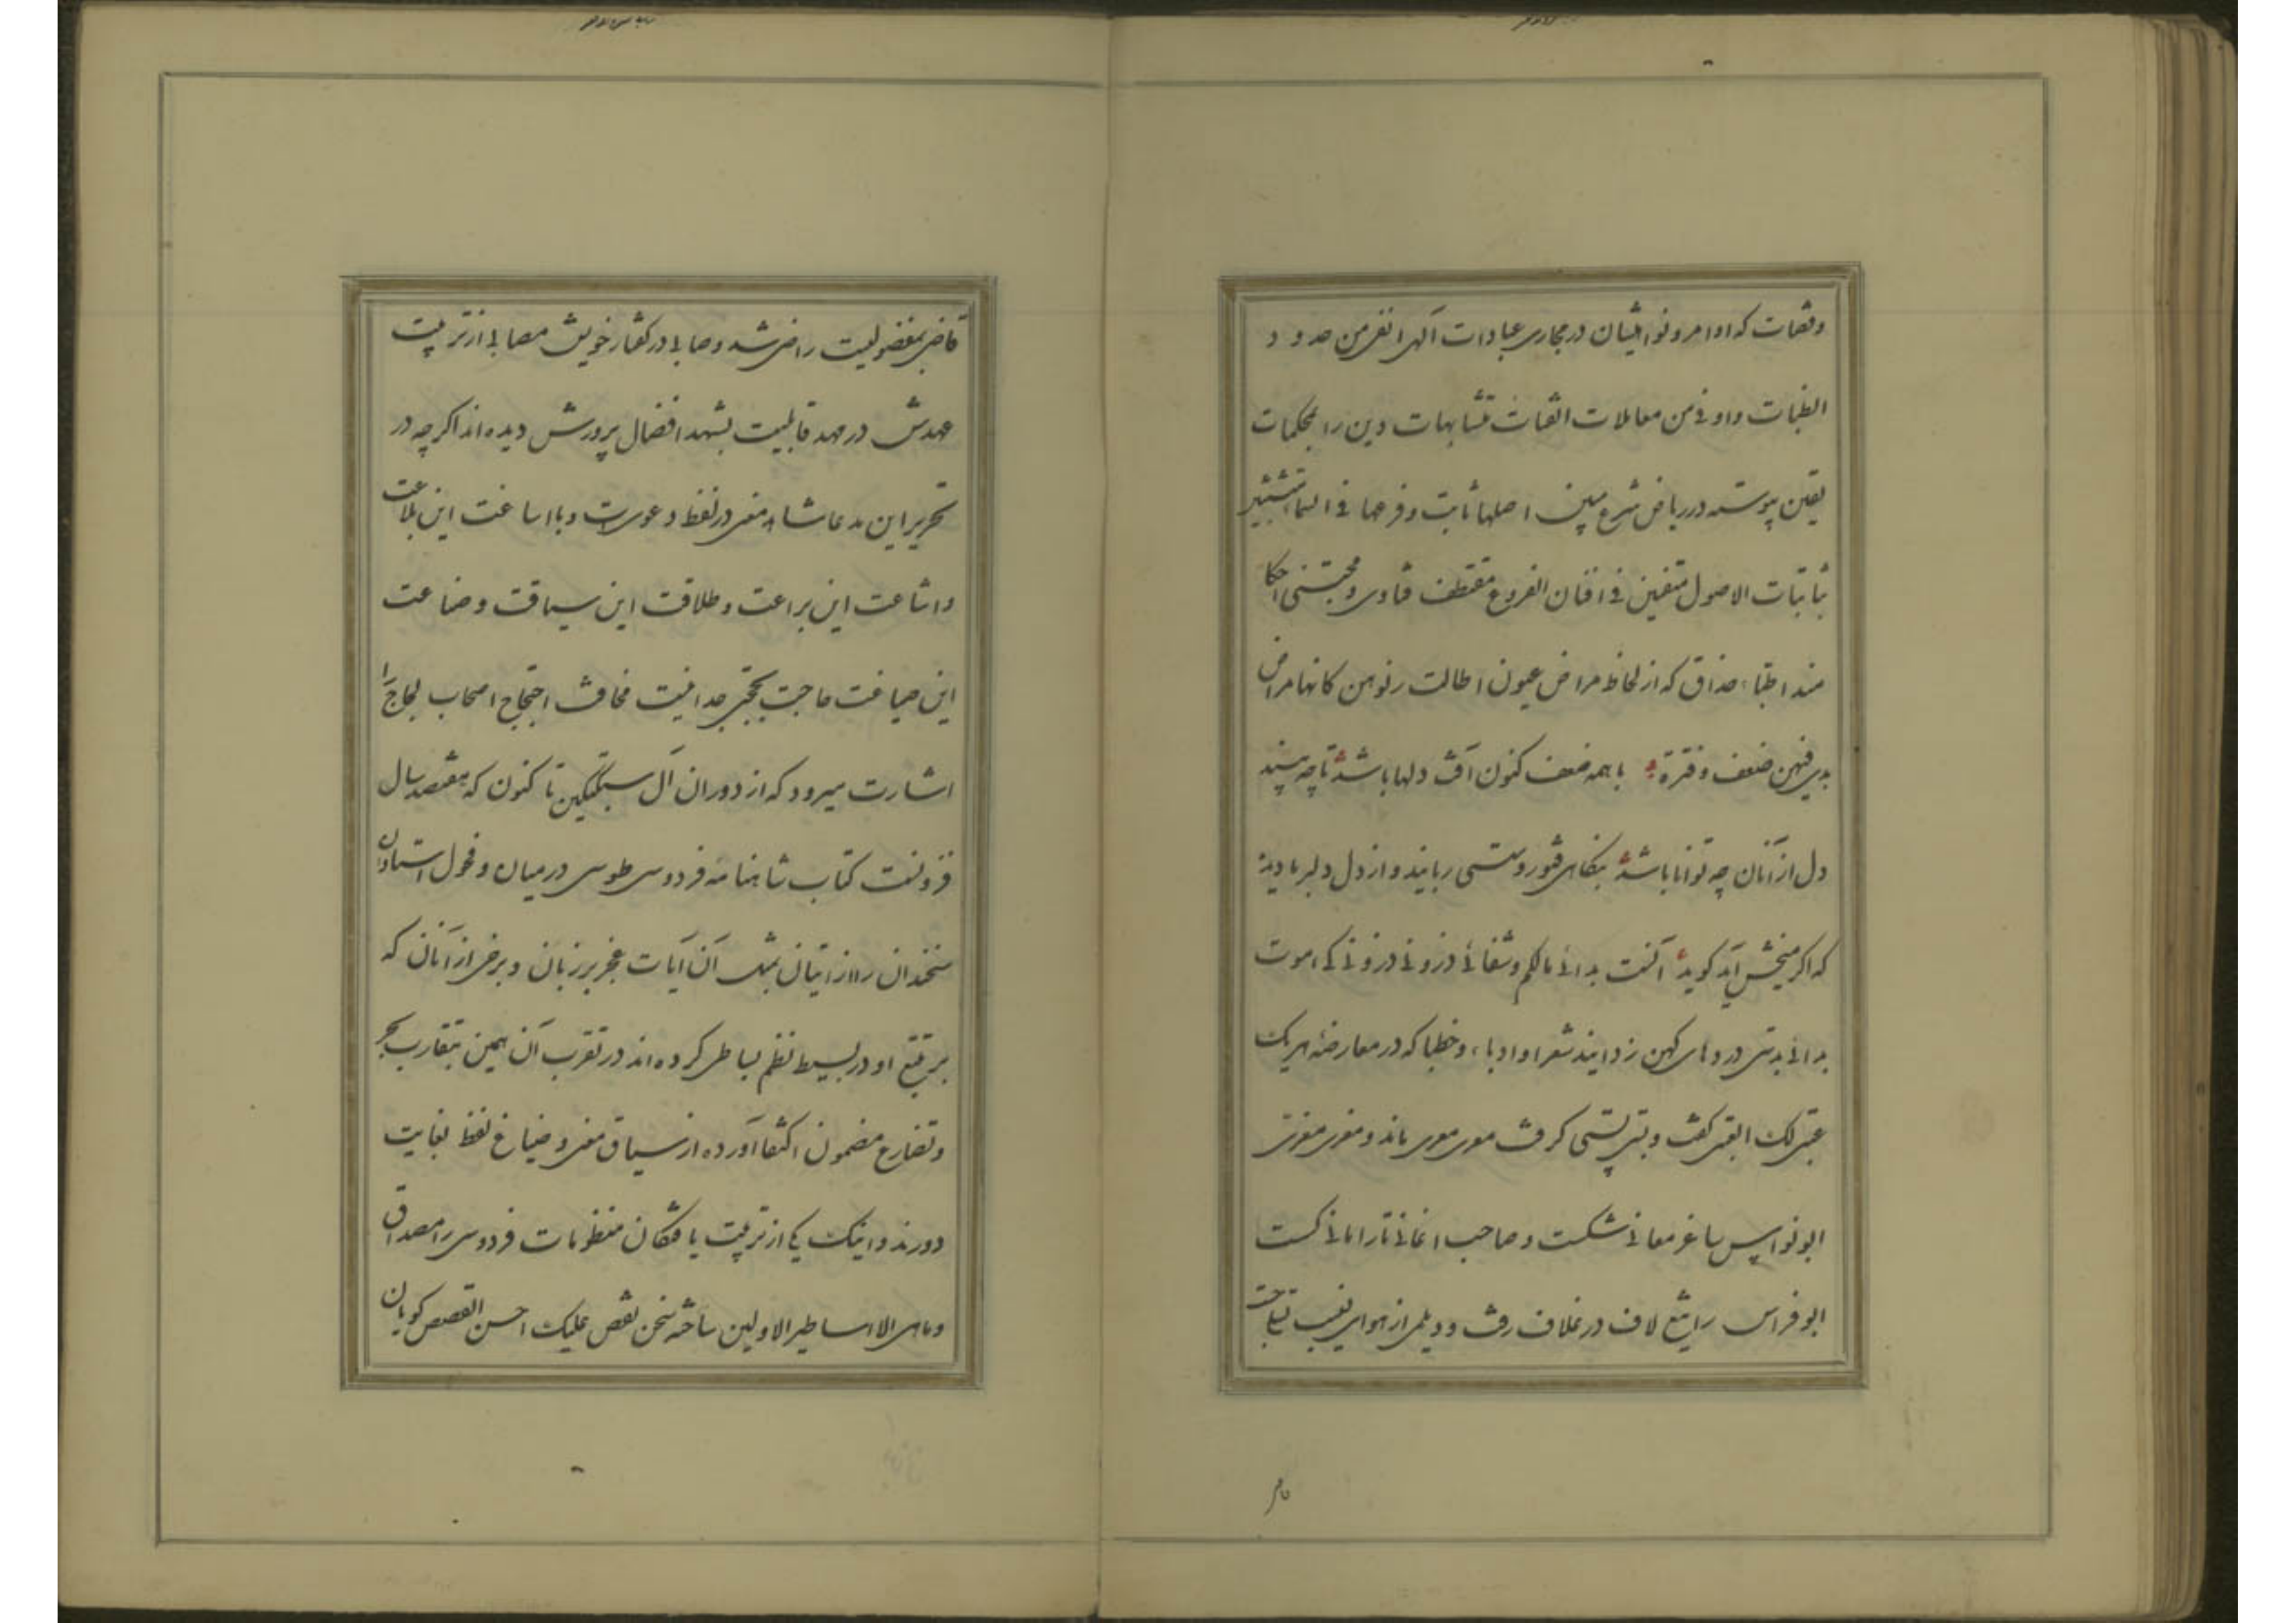 وقضات که اوامر و نواهیشان در مجاری عبادات آلهی انفر من حدود
الظبات و اوفی من معاملات الثقات متشابهات دین را بمحکمات
یقین پیوسته در ریاض شرع مبین اصلها ثابت و فرعها فی السما
ثابتات الاصول متفنین فی افنان الفروع مقتطف فتاوی و مجتنی
اطباء حذاق که از لحاظ مراض عیون اطالت رنوهن کانها مراض
فیهن ضعف و فترة با همه ضعف کنون آفت دلها باشد تا چه بیند
دل از آنان چه توانا باشد بنگاهی فتور و سستی ربایند و از دل دلبر باد
که اگر پیش آید گوید اکنت بدائی مالکم و شفائی ذرونی ذرونی کی اموت
بدائی بدتی دردهای کهن زدایند شعرا و ادباء و خطبا که در معارضه هر یک
گفت و پستی گرفت موری ماند و معری
ابونواس ساغر معانی شکست و صاحب اغانی تار امانی گسست
ابوفراس را تیغ لاف در غلاف رفت و دیلمی از هوای
قاضی بمفضولیت راضی شد و صابی در گفتار خویش مصابی از تربیت
عهدش در مهد قابلیت بشهد افضال پرورش دیده‌اند اگر چه در
تحریر این مدعا مشاهد معنی در لفظ دعویست و با اساغت این بلاغت
و اشاعت این براعت و طلاقت این سیاقت و صناعت
این صیاغت حاجت بحجتی جدا نیست مخافت احتجاج اصحاب لجاج را
اشارت میرود که از دوران آل سبکتکین تا کنون که هفتصد سال
فزونست کتاب شاهنامه فردوسی طوسی در میان و فحول استادان
سخندان را از اتیان بمثل آن آیات عجز بر زبان و برخی از آنان که
بر تتبع او در بسیط نظم بساطی کرده‌اند در تقرب آن همین بتقارب بحر
و تضارع مضمون اکتفا آورده از سیاق معنی و صیاغ لفظ بغایت
دورند و اینک یکی از تربیت یافتگان منظومات فردوسی را مصداق
و ما هی الا اساطیر الاولین ساخته نحن نقص علیک احسن القصص گویان